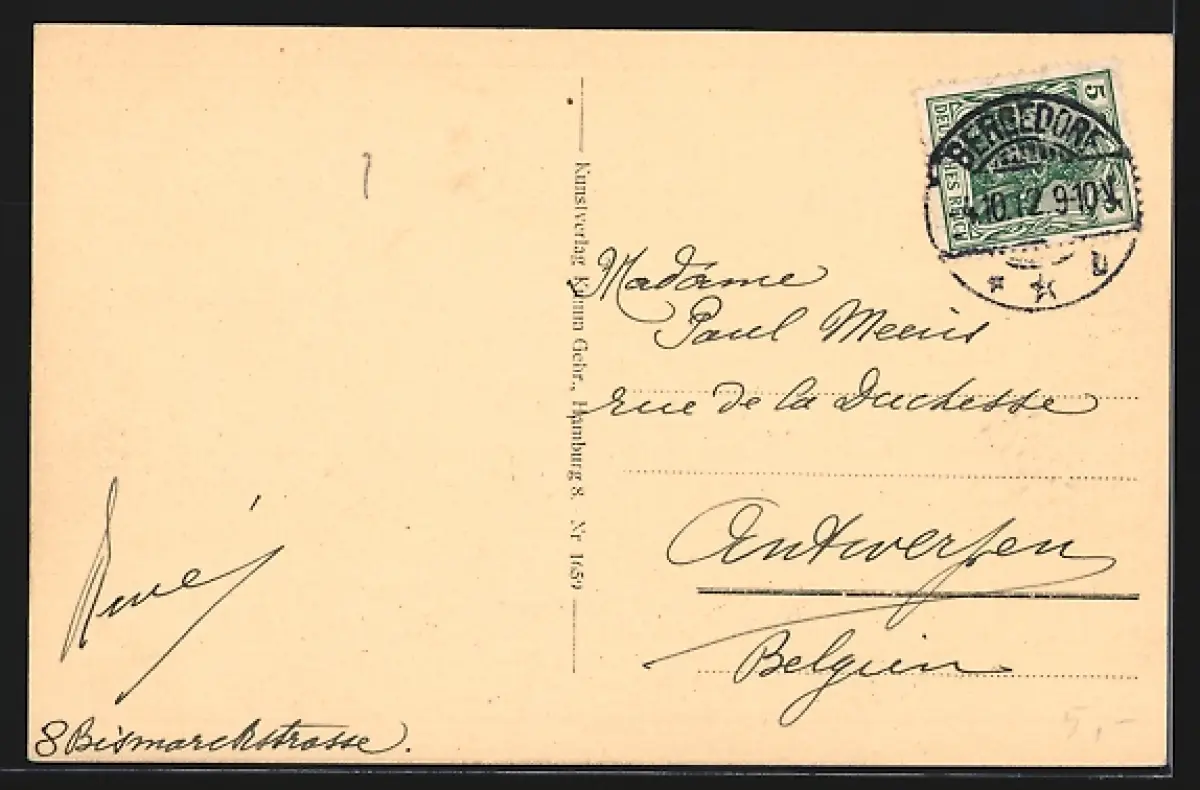 5
DEUTSCHES REICH
BERGEDORF
4.10.12. 9-10 V.
Kunstverlag Krumm Gebr., Hamburg 8. Nr. 1659
Madame
Paul Meeüs
rue de la Duchesse
Antwerpen
Belgien
René
8 Bismarckstrasse.
5,-